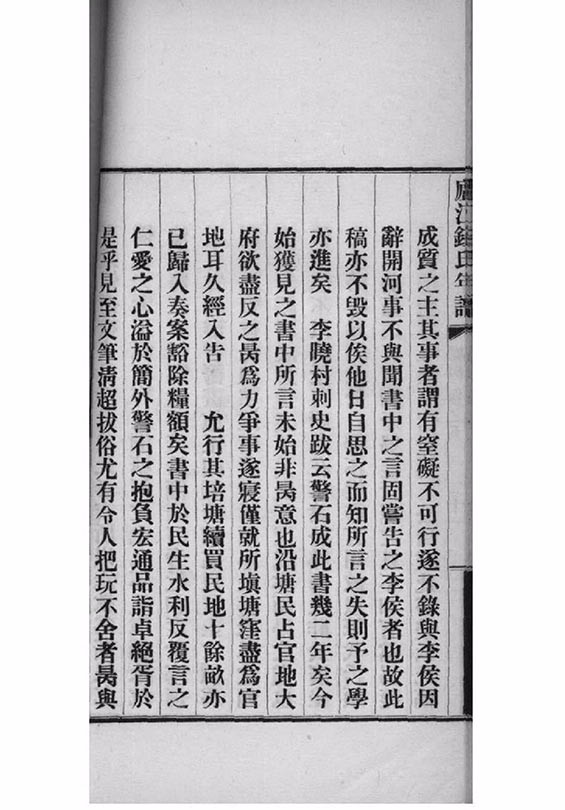 廬江錢氏年譜
成質之主其事者謂有窒礙不可行遂不錄與李侯因
辭開河事不與聞書中之言固嘗告之李侯者也故此
稿亦不毀以俟他日自思之而知所言之失則予之學
亦進矣　李曉村刺史跋云警石成此書幾二年矣今
始獲見之書中所言未始非昺意也沿塘民占官地大
府欲盡反之昺爲力爭事遂寢僅就所塡塘窪盡爲官
地耳久經入告　允行其培塘續買民地十餘畝亦
已歸入奏案豁除糧額矣書中於民生水利反覆言之
仁愛之心溢於簡外警石之抱負宏通品詣卓絕胥於
是乎見至文筆淸超拔俗尤有令人把玩不舍者昺與